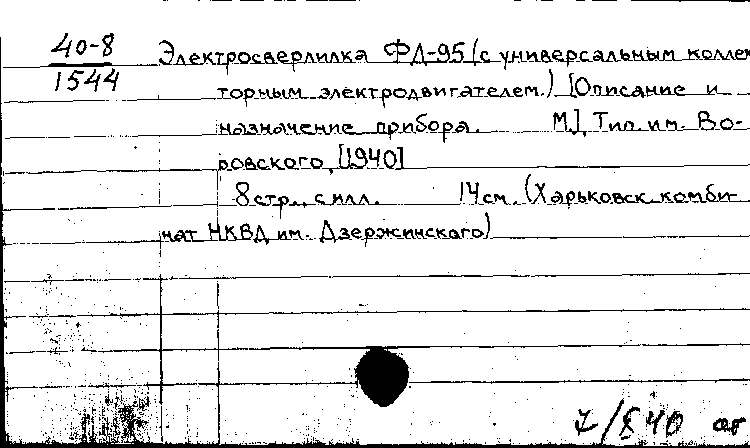 40-8
1544
Электросверлилка ФД-95 (с универсальным коллек
торным электродвигателем.) [Описание и
назначение прибора. М.], Тип. им. Во-
ровского, [1940]
8 стр., с илл. 14 см. (Харьковск. комби-
нат НКВД им. Дзержинского)